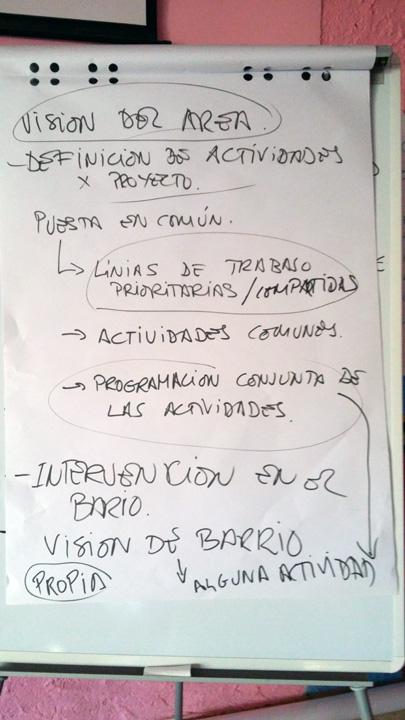 VISION DEL AREA.
- DEFINICION DE ACTIVIDADES
X PROYECTO.
PUESTA EN COMÚN.
LÍNIAS DE TRABAJO
PRIORITARIAS / COMPARTIDAS
→ ACTIVIDADES COMUNES.
→ PROGRAMACION CONJUNTA DE
LAS ACTIVIDADES.
- INTERVENCION EN EL
BARIO.
VISION DE BARRIO
PROPIA ↓ ALGUNA ACTIVIDAD